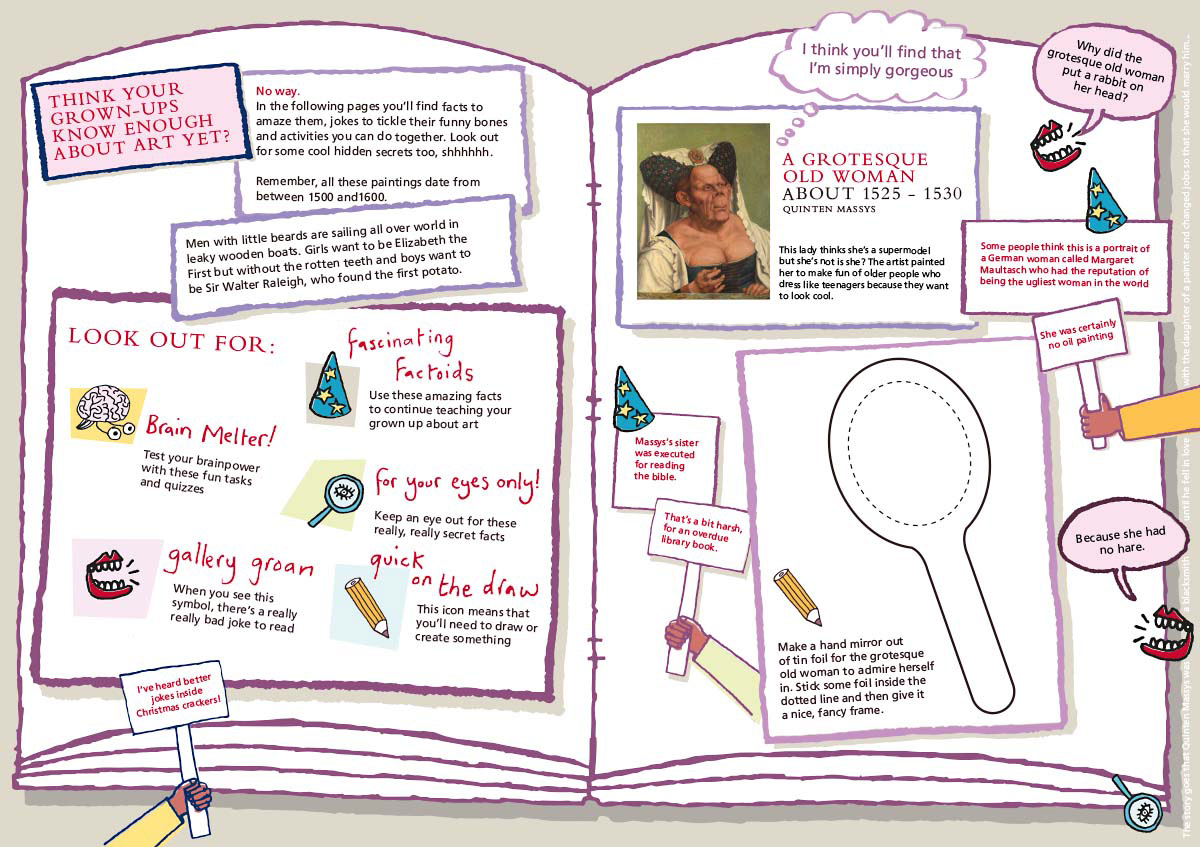 THINK YOUR
GROWN-UPS
KNOW ENOUGH
ABOUT ART YET?
No way.
In the following pages you'll find facts to
amaze them, jokes to tickle their funny bones
and activities you can do together. Look out
for some cool hidden secrets too, shhhhhh.
Remember, all these paintings date from
between 1500 and1600.
Men with little beards are sailing all over world in
leaky wooden boats. Girls want to be Elizabeth the
First but without the rotten teeth and boys want to
be Sir Walter Raleigh, who found the first potato.
LOOK OUT FOR:
fascinating
Factoids
Use these amazing facts
to continue teaching your
grown up about art
Brain Melter!
Test your brainpower
with these fun tasks
and quizzes
for your eyes only!
Keep an eye out for these
really, really secret facts
gallery groan
When you see this
symbol, there's a really
really bad joke to read
quick
on the draw
This icon means that
you'll need to draw or
create something
I've heard better
jokes inside
Christmas crackers!
I think you'll find that
I'm simply gorgeous
Why did the
grotesque old woman
put a rabbit on
her head?
A GROTESQUE
OLD WOMAN
ABOUT 1525 – 1530
QUINTEN MASSYS
This lady thinks she's a supermodel
but she's not is she? The artist painted
her to make fun of older people who
dress like teenagers because they want
to look cool.
Some people think this is a portrait of
a German woman called Margaret
Maultasch who had the reputation of
being the ugliest woman in the world
She was certainly
no oil painting
Massys's sister
was executed
for reading
the bible.
That's a bit harsh,
for an overdue
library book.
Make a hand mirror out
of tin foil for the grotesque
old woman to admire herself
in. Stick some foil inside the
dotted line and then give it
a nice, fancy frame.
Because she had
no hare.
The story goes that Quinten Massys was a blacksmith until he fell in love with the daughter of a painter and changed jobs so that she would marry him...